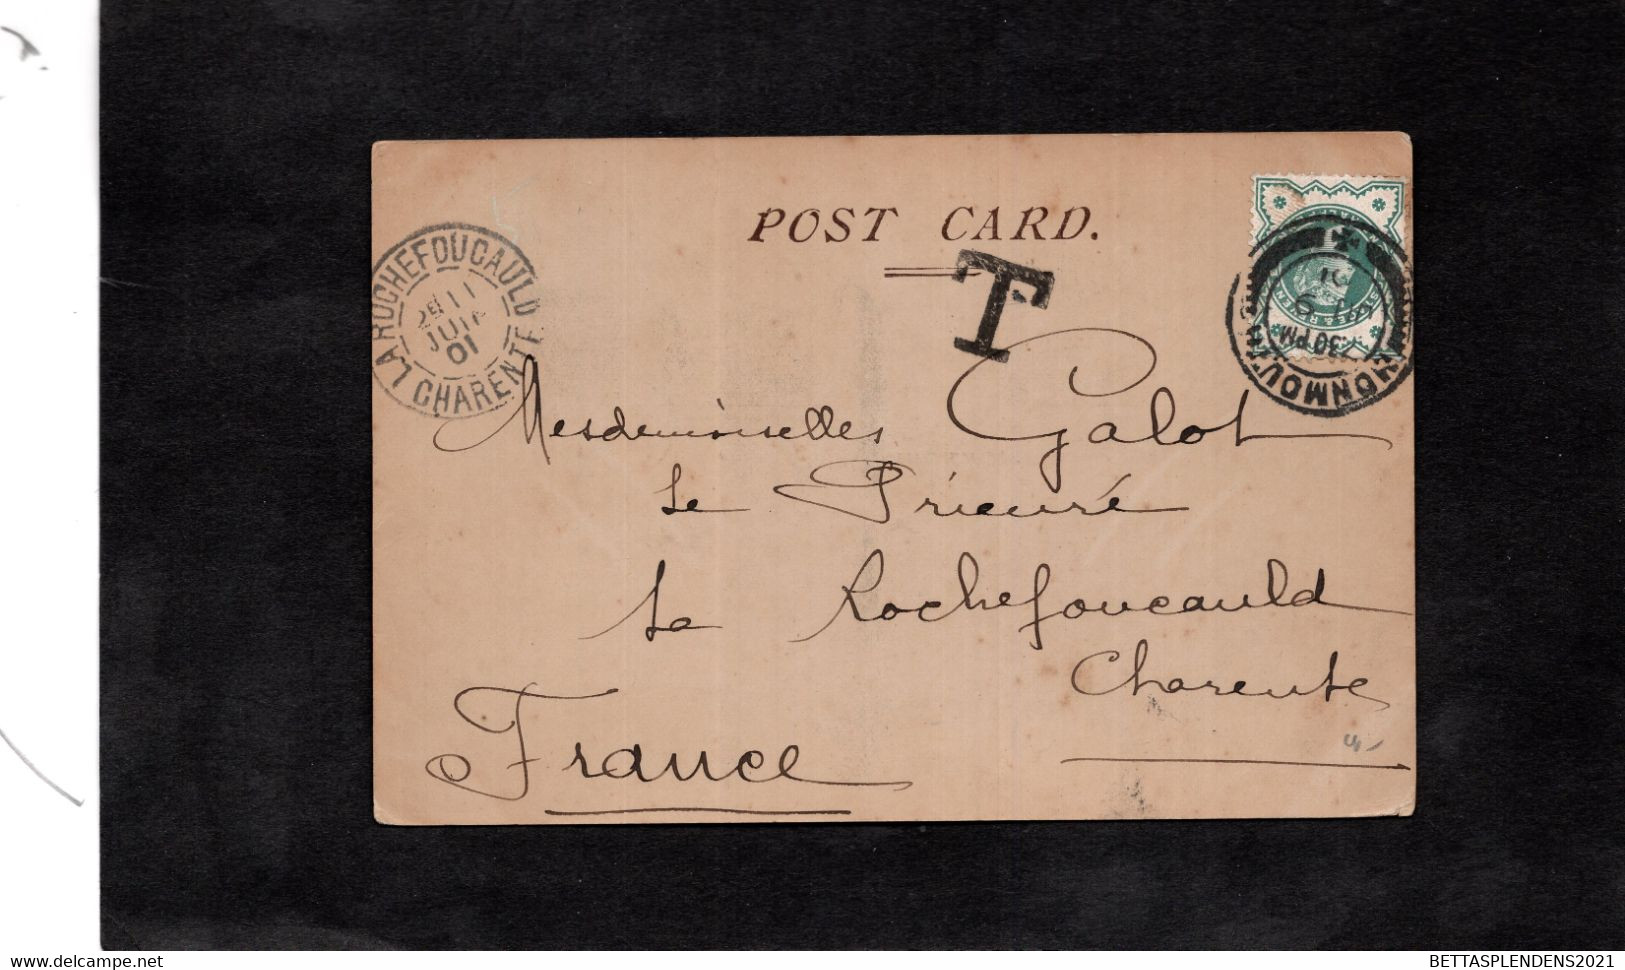 POST CARD.
T
LA ROCHEFOUCAULD
2E 11
JUIN
01
CHARENTE
MONMOUTH
7 30 PM
01
Mesdemoiselles Galot
Le Prieuré
La Rochefoucauld
Charente
France
delcampe.net
BETTASPLENDENS2021